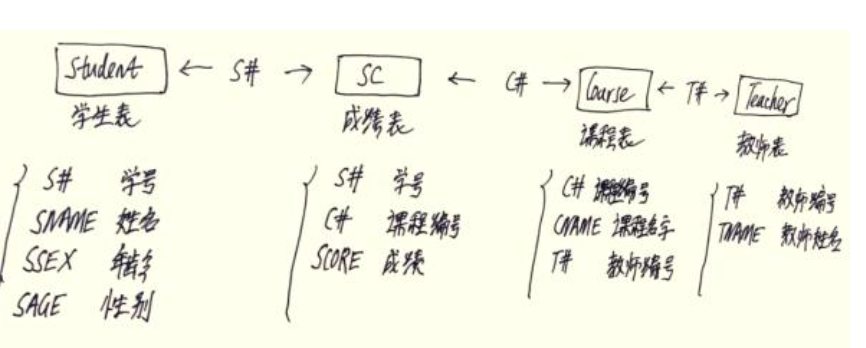 Student ← S# → SC ← C# → Course ← T# → Teacher
学生表 成绩表 课程表 教师表
S# 学号
SNAME 姓名
SSEX 年龄
SAGE 性别
S# 学号
C# 课程编号
SCORE 成绩
C# 课程编号
CNAME 课程名字
T# 教师编号
T# 教师编号
TNAME 教师姓名